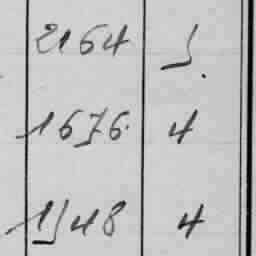 2164 5.
1676. 4
1548 4